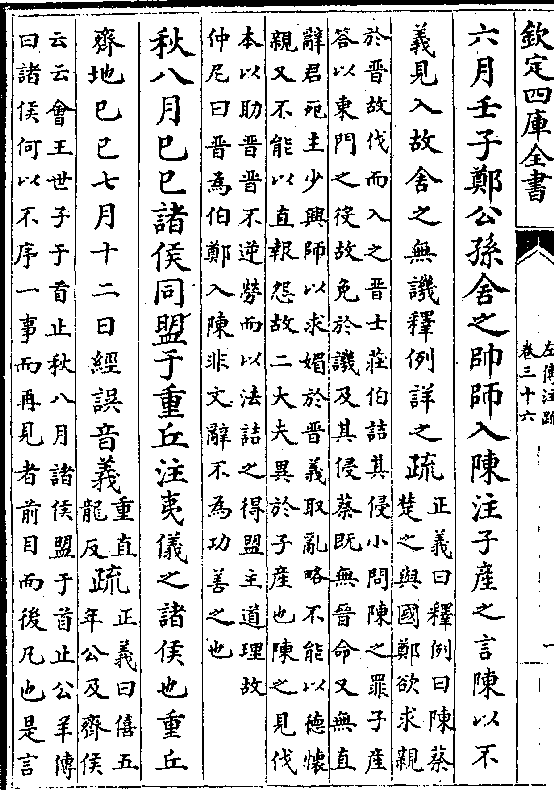 欽定四庫全書
左傳注疏
卷三十六
一
六月壬子鄭公孫舍之帥師入陳注子産之言陳以不
義見入故舍之無譏釋例詳之疏
正義曰釋例曰陳蔡
楚之與國鄭欲求親
於晉故伐而入之晉士莊伯詰其侵小問陳之罪子産
答以東門之役故免於譏及其侵蔡既無晉命又無直
辭君宛主少興師以求媚於晉義取亂略不能以德懐
親又不能以直報怨故二大夫異於子産也陳之見伐
本以助晉晉不逆勞而以法詰之得盟主道理故
仲尼曰晉為伯鄭入陳非文辭不為功善之也
秋八月巳巳諸侯同盟于重丘注夷儀之諸侯也重丘
齊地巳巳七月十二日經誤音義
重直
龍反
疏
正義曰僖五
年公及齊侯
云云會王世子于首止秋八月諸侯盟于首止公羊傳
曰諸侯何以不序一事而再見者前目而後凡也是言